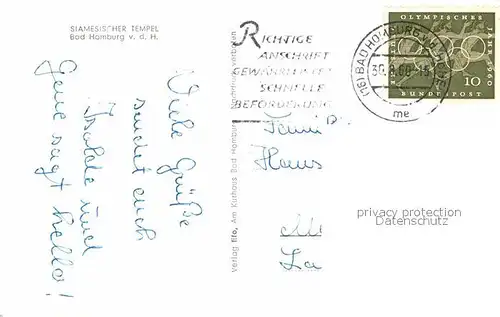 SIAMESISCHER TEMPEL
Bad Homburg v. d. H.
Viele Grüße
sendet euch
Isolde und
Gene sagt hello!
Verlag filo, Am Kurhaus Bad Homburg
RICHTIGE
ANSCHRIFT
GEWÄHRLEISTET
SCHNELLE
BEFÖRDERUNG
(16) BAD HOMBURG
30.8.60-15
me
OLYMPISCHES
JAHR 1960
10
BUNDESPOST
Hans
privacy protection
Datenschutz